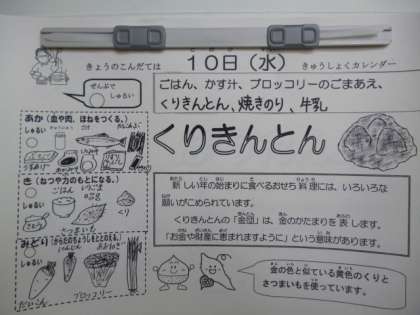 きょうのこんだては
10日(水)
きゅうしょくカレンダー
ぜんぶで
しゅるい
ごはん、かす汁、ブロッコリーのごまあえ、
くりきんとん、焼きのり、牛乳
くりきんとん
あか(血や肉、ほねをつくる、)
しゅるい
き(ねつや力のもとになる、)
しゅるい
ごはん
くり
さつまいも
みどり(からだのちょうしをととのえる、)
しゅるい
だいこん
ブロッコリー
新しい年の始まりに食べるおせち料理には、いろいろな
願いがこめられています。
くりきんとんの「金団」は、金のかたまりを表します。
「お金や財産に恵まれますように」という意味があります。
金の色と似ている黄色のくりと
さつまいもを使っています。